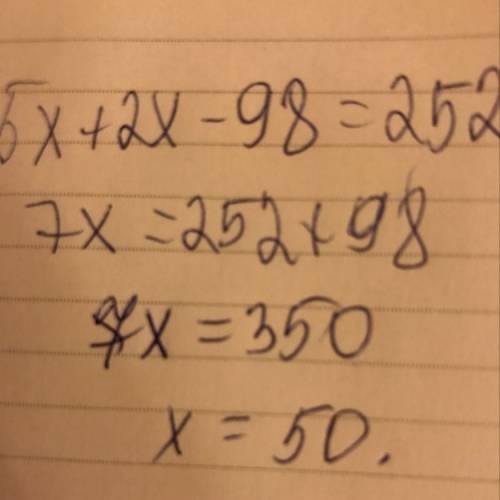 5x+2x-98=252
7x=252+98
7x=350
x=50.